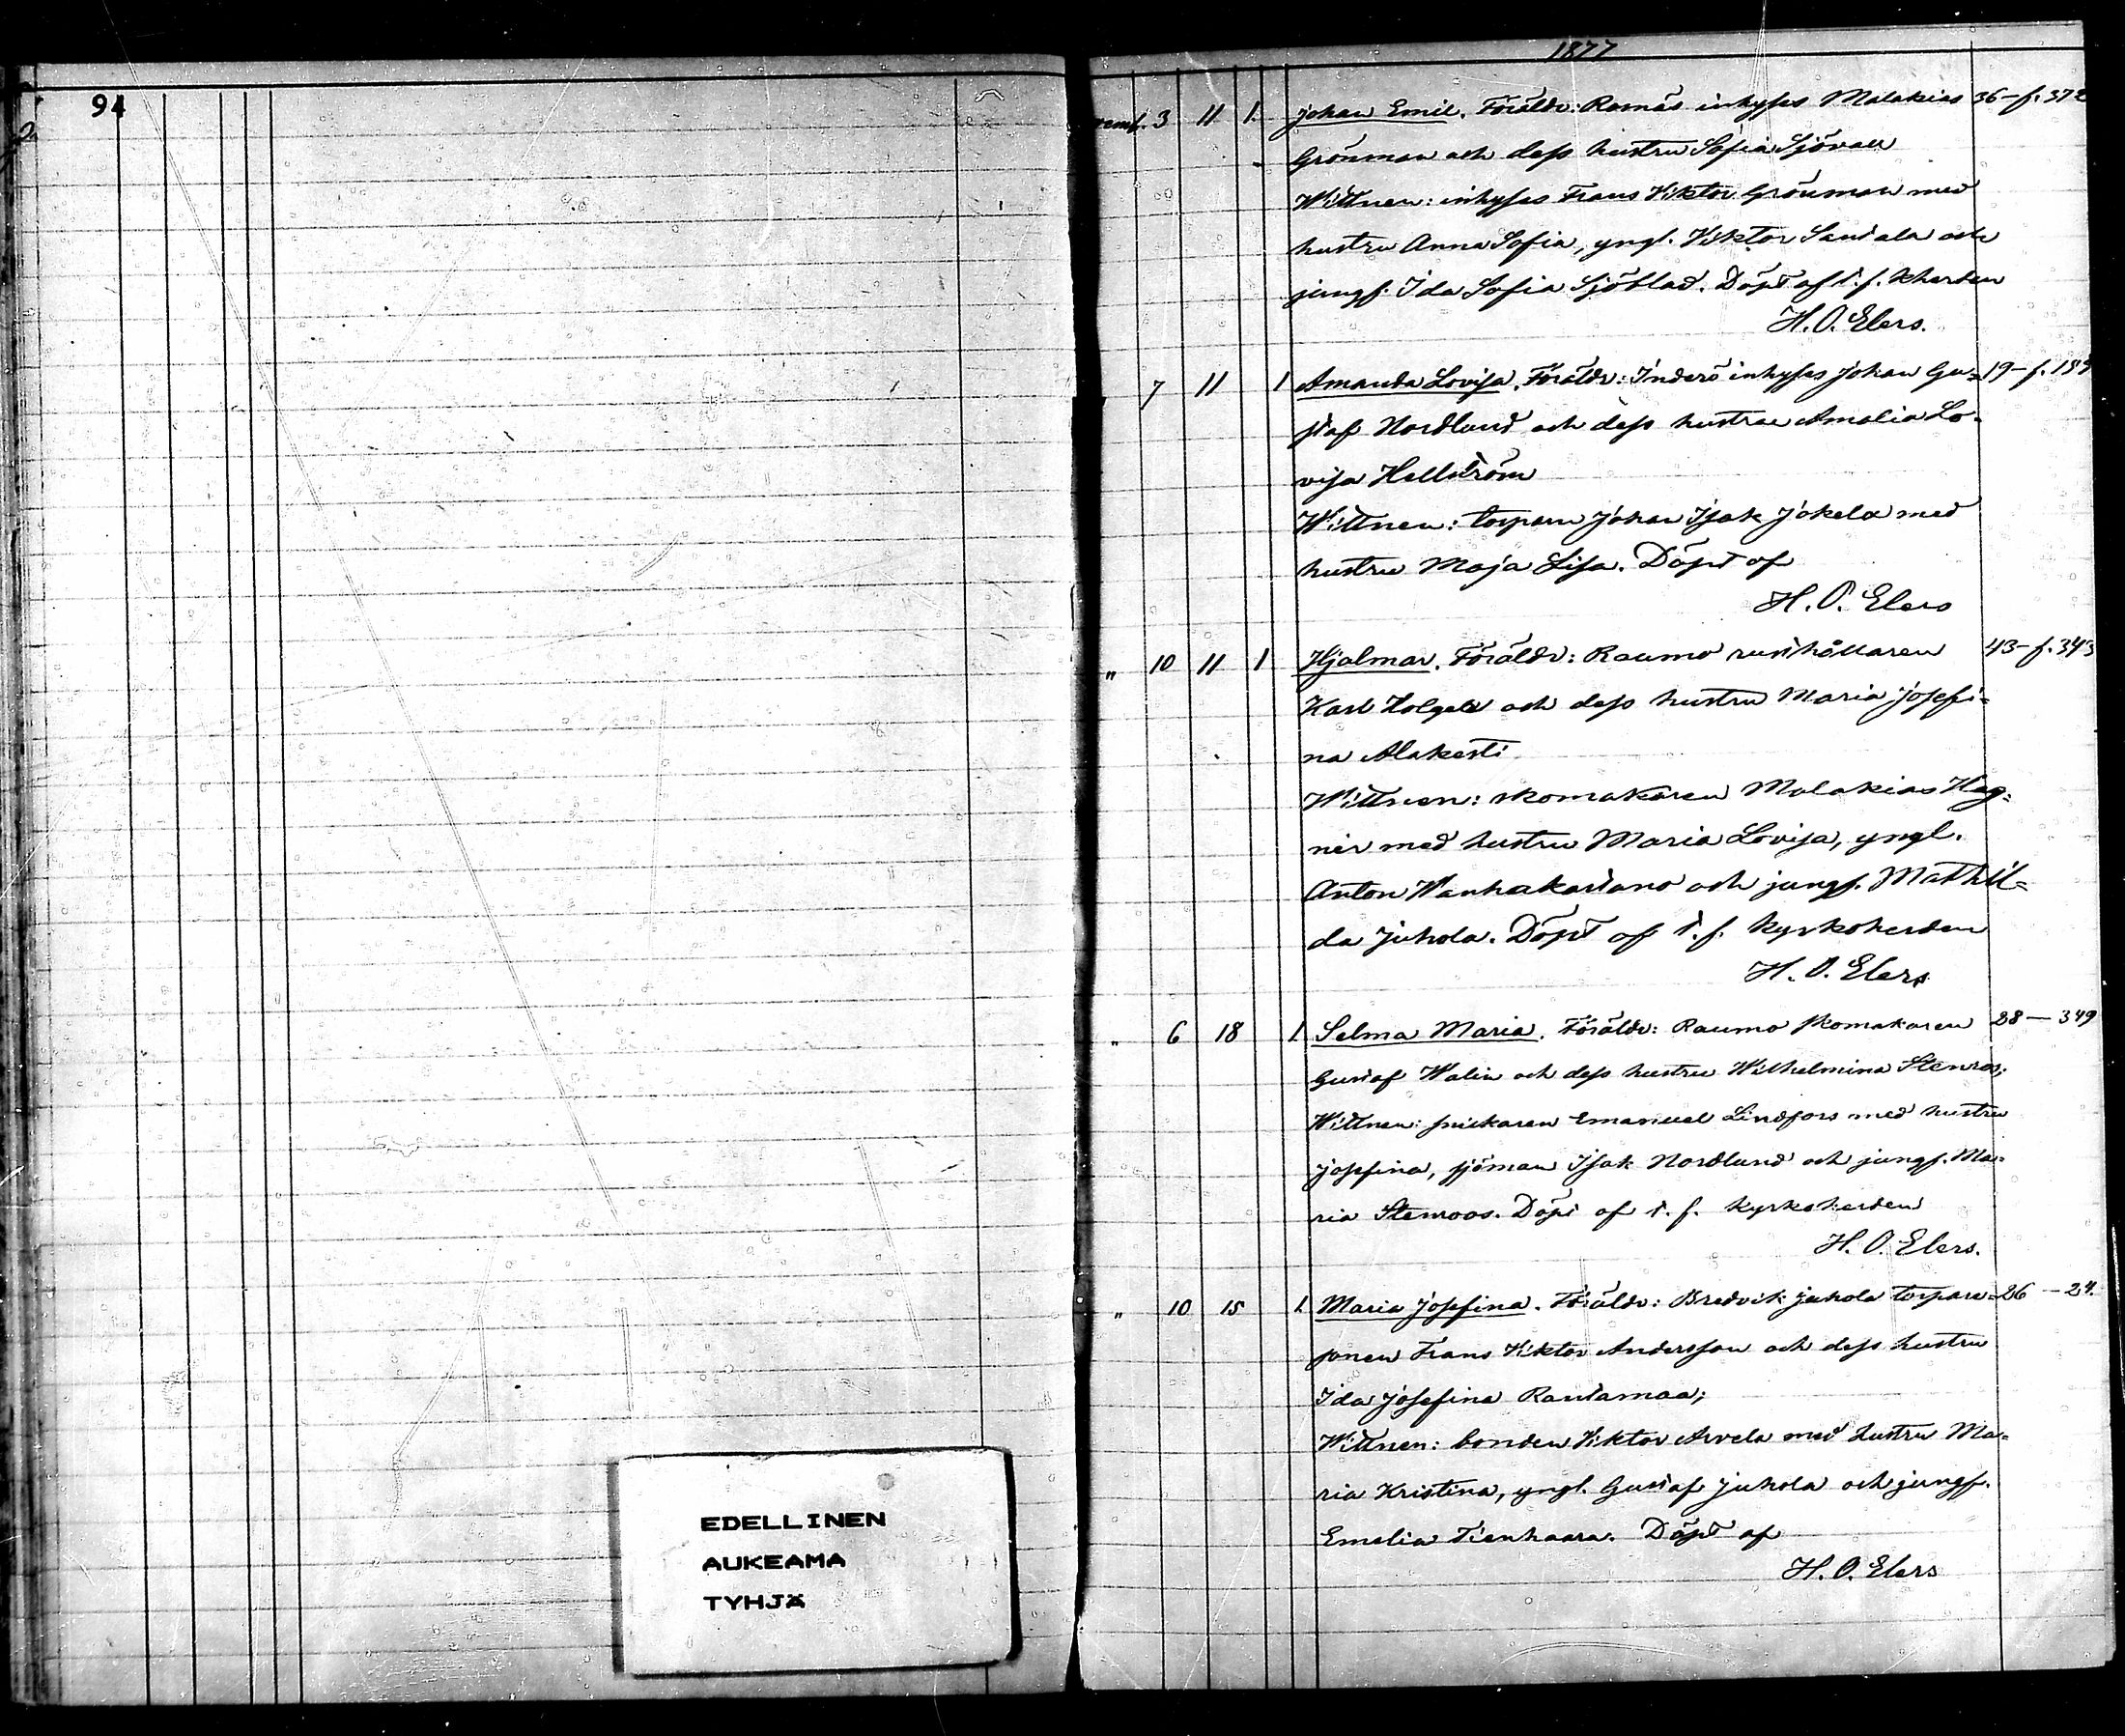 94
1877
3 11 1. Johan Emil. Föräldr: Ramäs inhyses Malakias 36-f. 372
Grönman och dess hustru Sofia Sjövall
Wittnen: inhyses Frans Viktor Grönman med
hustru Anna Sofia, yngl. Viktor Santala och
jungf. Ida Sofia Sjöblad. Döpt af t. f. Kherden
H. O. Elers.
7 11 1 Amanda Lovisa. Föräldr: Inderö inhyses Johan Gu= 19-f. 189
staf Nordlund och dess hustru Amalia Lo-
visa Hellström
Wittnen: torparn Johan Isak Jokela med
hustru Maja Lisa. Döpt af
H. O. Elers
" 10 11 1 Hjalmar. Föräldr: Raumo rusthållaren 43-f. 343
Karl Holgela och dess hustru Maria Josefi=
na Alakesti
Wittnen: skomakaren Malakias Hag=
ner med hustru Maria Lovisa, yngl.
Anton Wanhakartano och jungf. Mathil=
da Juhola. Döpt af t. f. Kyrkoherden
H. O. Elers
" 6 18 1. Selma Maria. Föräldr: Raumo skomakaren 28-349
Gustaf Walin och dess hustru Wilhelmina Stenros;
Wittnen: snickaren Emanuel Lindfors med hustru
Josefina, sjöman Isak Nordlund och jungf. Ma=
ria Stenroos. Döpt af t. f. Kyrkoherden
H. O. Elers.
" 10 15 1. Maria Josefina. Föräldr: Bredvik Juhola torpare= 26-24.
sonen Frans Viktor Andersson och dess hustru
Ida Josefina Rantamaa;
Wittnen: bonden Viktor Arvela med hustru Ma=
ria Kristina, yngl. Gustaf Juhola och jungf.
Emelia Tienhaara. Döpt af
H. O. Elers
EDELLINEN
AUKEAMA
TYHJÄ